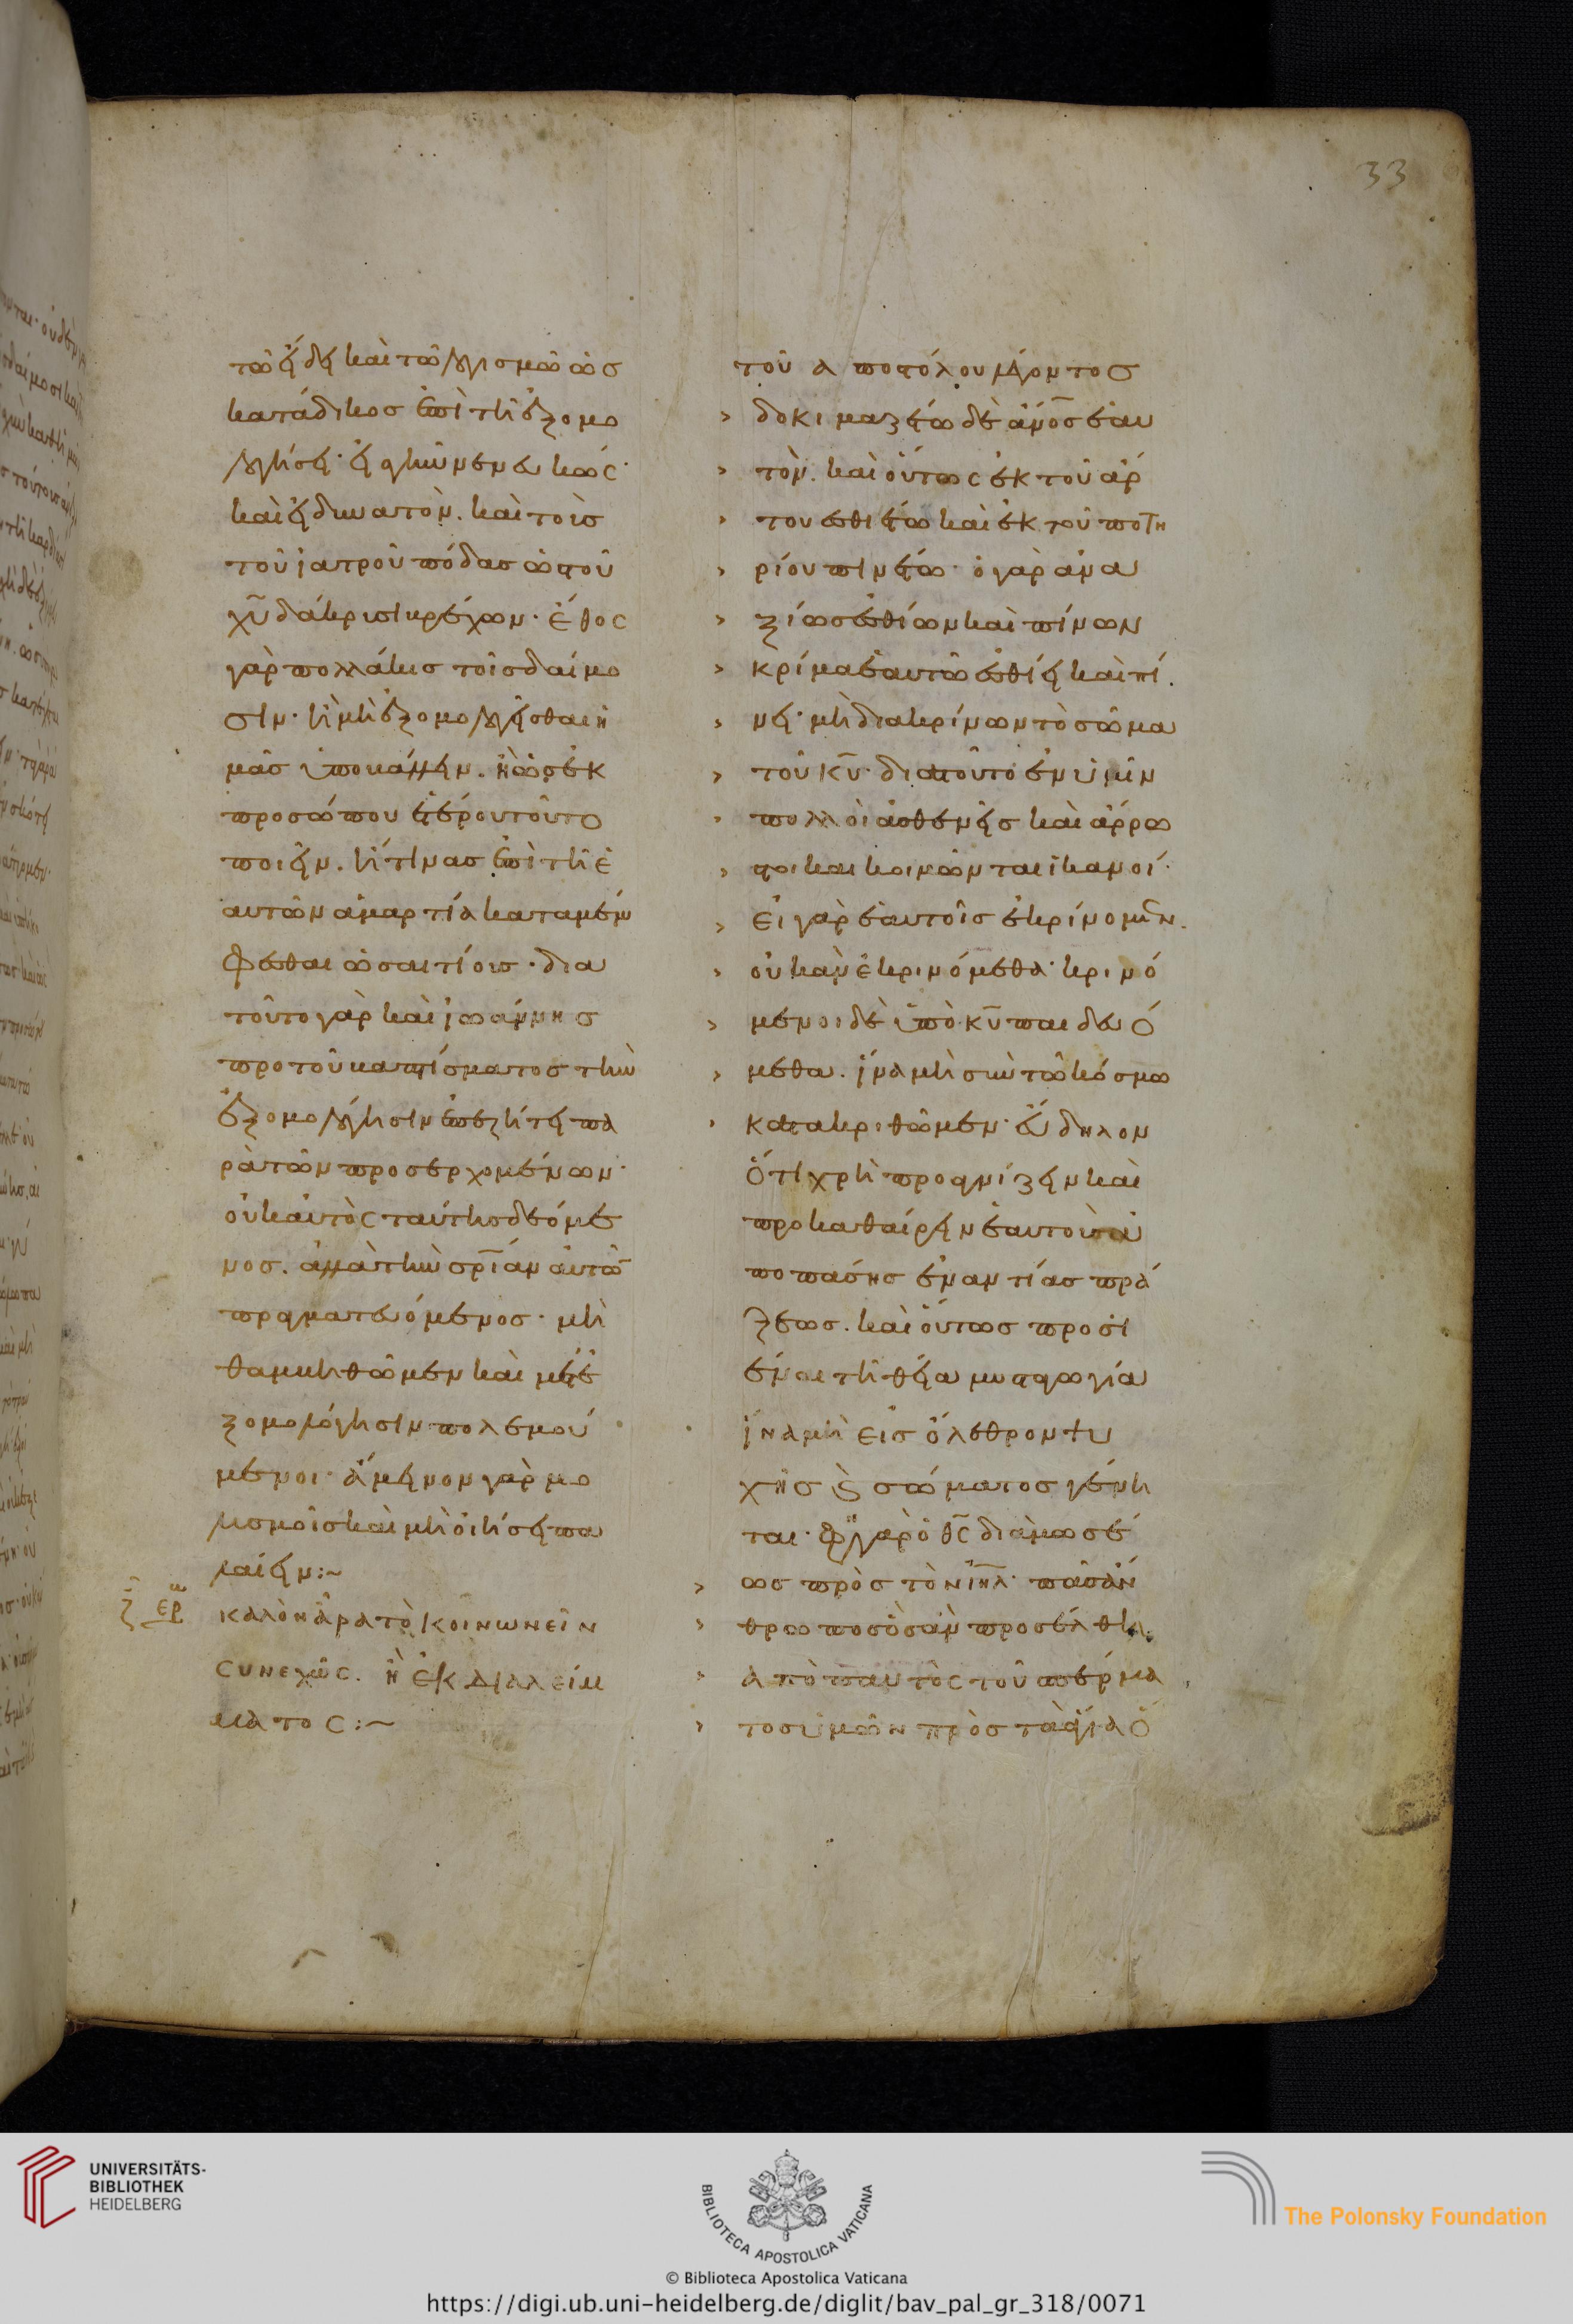 τῶ εἴδει καὶ τῶ λογισμῶ ὡσ
κατάδικοσ ἐπὶ τῆ ἐξομο
λογήσει· εἰς γῆν νενευκώς·
καὶ εἰ δυνατὸν. καὶ τοὺσ
τοῦ ἰατροῦ πόδασ ὡς τοῦ
χ̅υ̅ δάκρυσι βρέχων· ἔθος
γὰρ πολλάκισ τοῖσ δαίμο
σιν· ἢ μὴ ἐξομολογεῖσθαι ἡ
μᾶσ ὑποβάλλειν. ἢ ὡσ ἐκ
προσώπου ἑτέρου τοῦτο
ποιεῖν. ἤ τινασ ἐπὶ τῆ ἑ
αυτῶν ἁμαρτία καταμέμ
φεσθαι ὡσ αἰτίουσ· δια
τοῦτο γὰρ καὶ ἰωάννησ
προ τοῦ βαπτίσματοσ τὴν
ἐξομολόγησιν ἐπεζήτει πα
ρὰ τῶν προσερχομένων·
οὐκ αὐτὸς ταύτησ δεόμε
νοσ. ἀλλὰ τὴν σ̅ρ̅ι̅α̅ν αὐτῶν
πραγματευόμενοσ· μὴ
θαμβηθῶμεν καὶ μετ ἐ
ξομολόγησιν πολεμού
μενοι· ἄμεινον γὰρ μο
λυσμοῖσ καὶ μὴ οἰήσει πα
λαίειν:~
ζ̅ ἐρ
καλὸν ἆρα τὸ κοινωνεῖν
συνεχῶς. ἢ ἐκ διαλείμ
ματος:~
τοῦ αποστόλου λέγοντοσ
> δοκιμαζέτω δὲ ἄν̅ο̅σ ἑαυ
> τὸν. καὶ οὕτως ἐκ τοῦ ἄρ
> του ἐσθιέτω καὶ ἐκ τοῦ ποτη
> ρίου πινέτω· ὁ γὰρ ἀνα
> ξίωσ ἐσθίων καὶ πίνων
> κρίμα ἑαυτῶ ἐσθίει καὶ πί
> νει· μὴ διακρίνων τὸ σῶμα
> τοῦ κ̅υ̅· διατοῦτο ἐν ὑμῖν
> πολλοὶ ἀσθενεῖσ καὶ ἄρρω
> στοι και κοιμῶνται ἱκανοί·
> εἰ γὰρ ἑαυτοῖσ ἐκρίνομεν.
> οὐκ ἂν ἐκρινόμεθα· κρινό
> μενοι δὲ ὑπὸ κ̅υ̅ παιδευό
> μεθα. ἵνα μὴ σὺν τῶ κόσμω
> κατακριθῶμεν· εὔδηλον
ὅτι χρὴ προαγνίζειν καὶ
προκαθαίρειν ἑαυτοὺσ ἀ
πο πάσησ ἐναντίασ πρά
ξεωσ. καὶ οὕτωσ προσι
έναι τῆ θεία μυσταγωγία
ἵνα μὴ εἰσ ὄλεθρον ψυ
χῆσ καὶ σώματοσ γένη
ται· φησὶ γὰρ ὁ θ̅ς̅ διὰ μωσέ
> ωσ πρὸσ τὸν ι̅η̅λ̅· πᾶσ ἄν
> θρωποσ ὃσ ἂν προσέλθη
> ἀπὸ παντὸς τοῦ σπέρμα
> τοσ ὑμῶν πρὸσ τὰ ἅγια ὅ
33
UNIVERSITÄTS-
BIBLIOTHEK
HEIDELBERG
BIBLIOTECA APOSTOLICA VATICANA
The Polonsky Foundation
© Biblioteca Apostolica Vaticana
https://digi.ub.uni-heidelberg.de/diglit/bav_pal_gr_318/0071